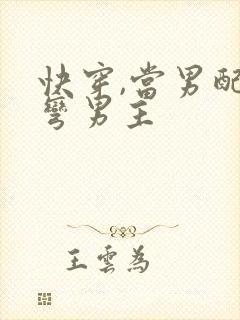 快穿,當男配
彎男主
王雲為